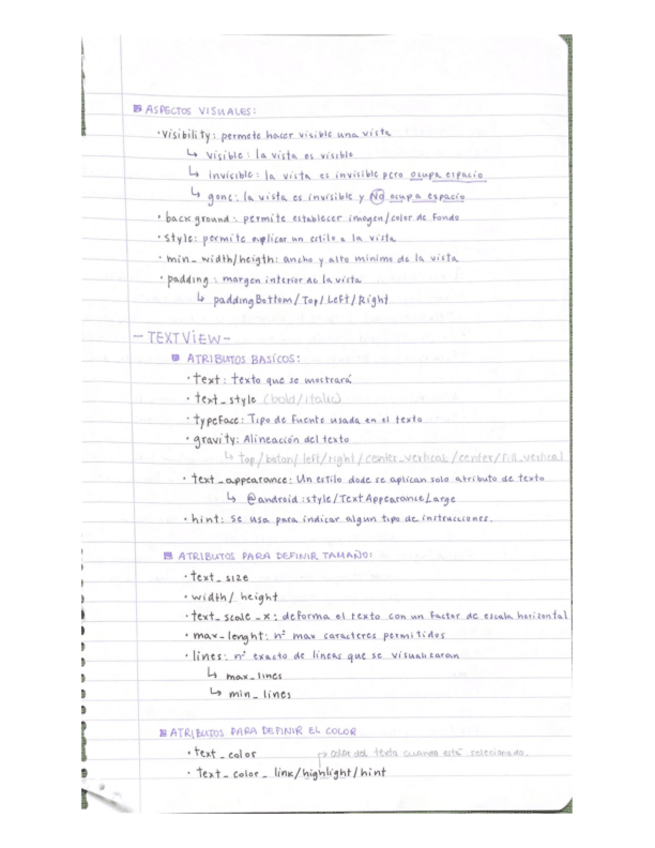 ASPECTOS VISUALES:
• visibility: permete hacer visible una vista
↳ visible: la vista es visible
↳ invisible: la vista es invisible pero ocupa espacio
↳ gone: la vista es invisible y NO ocupa espacio
• background: permite establecer imagen/color de fondo
• style: permite aplicar un estilo a la vista
• min_width/heigth: ancho y alto mínimo de la vista
• padding: margen interior de la vista
↳ paddingBottom/Top/Left/Right
- TEXTVIEW -
ATRIBUTOS BASICOS:
• text: texto que se mostrará
• text_style (bold/italic)
• typeFace: Tipo de fuente usada en el texto
• gravity: Alineación del texto
↳ top/boton/left/right/center_vertical/center/fill_vertical
• text_appearance: Un estilo dode se aplican solo atributo de texto
↳ @android:style/TextAppearanceLarge
• hint: se usa para indicar algun tipo de instrucciones.
ATRIBUTOS PARA DEFINIR TAMAÑO:
• text_size
• width/height
• text_scale_x: deforma el texto con un factor de escala horizontal
• max_lenght: nº max caracteres permitidos
• lines: nº exacto de lineas que se visualizaran
↳ max_lines
↳ min_lines
ATRIBUTOS PARA DEFINIR EL COLOR
• text_color
→ color del texto cuando está selecionado.
• text_color_link/highlight/hint